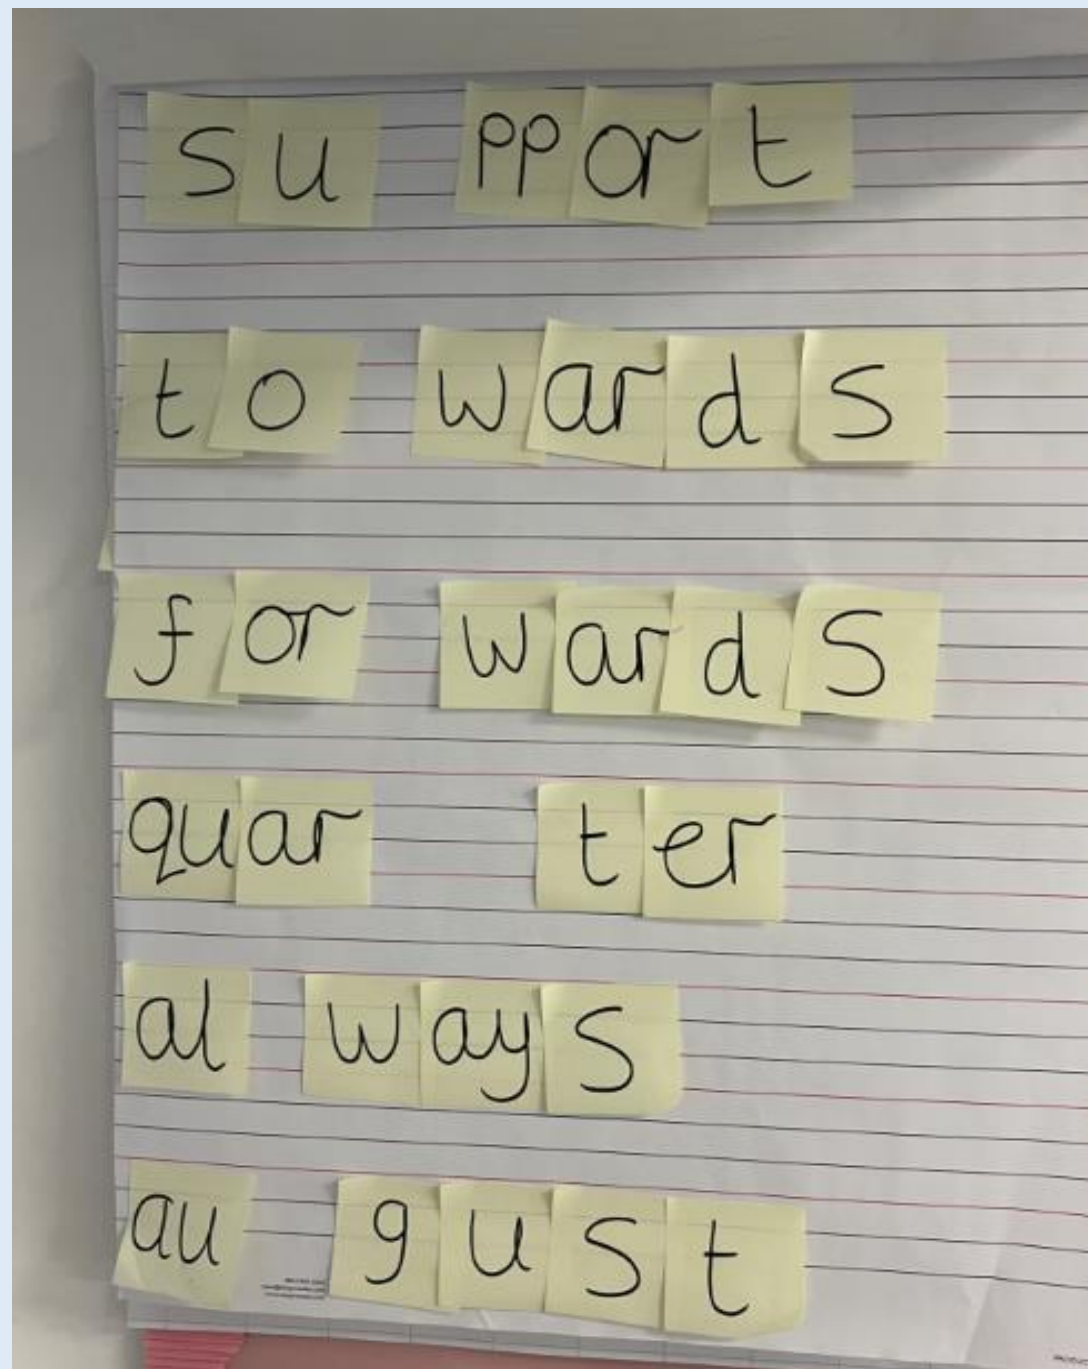 su pport
to wards
for wards
quar ter
al ways
au gust